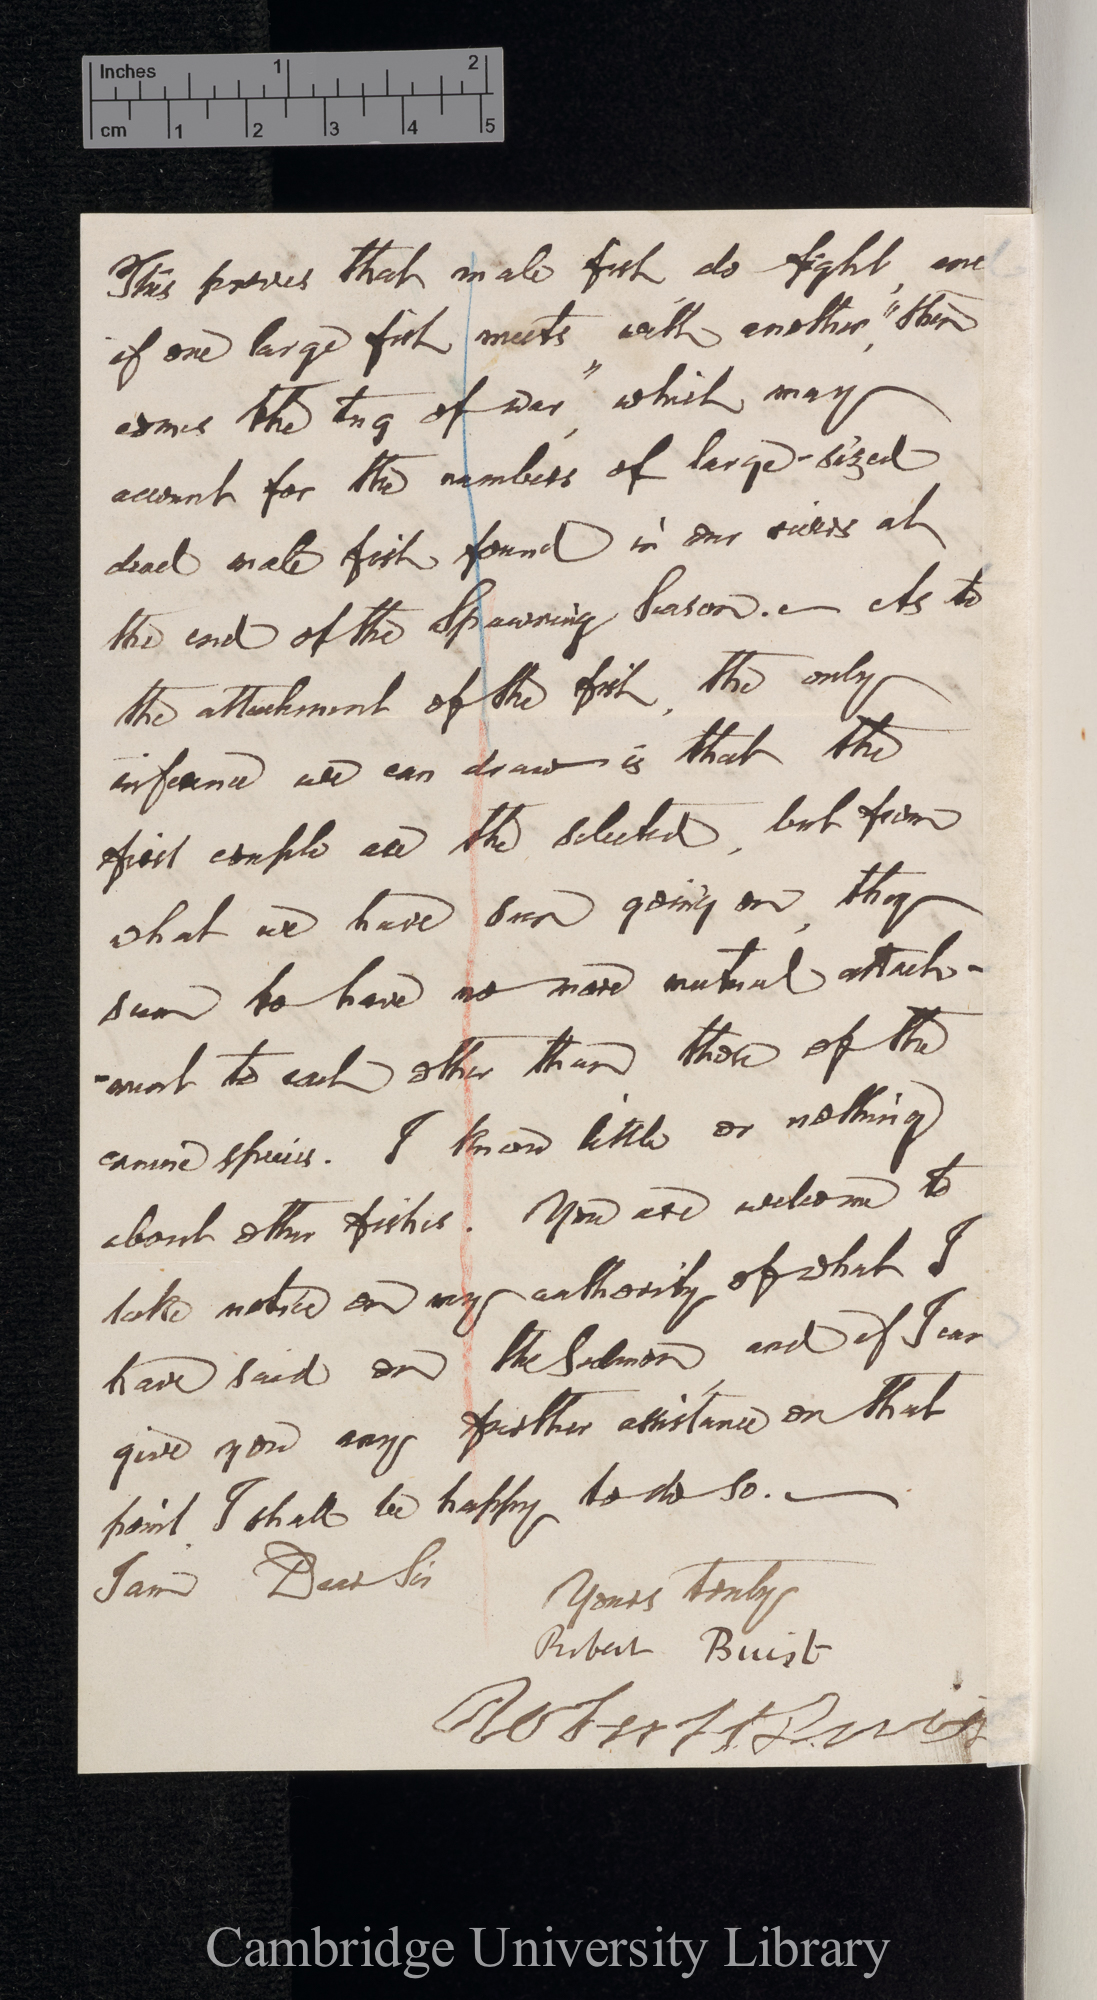 Inches 1 2
cm 1 2 3 4 5
This proves that male fish do fight, and
if one large fish meets with another, "then
comes the tug of war", which may
account for the numbers of large-sized
dead male fish found in our rivers at
the end of the Spawning Season. — As to
the attachment of the fish, the only
inference we can draw is that the
first couple are the selected, but from
what we have seen going on, they
seem to have no more mutual attach-
-ment to each other than those of the
canine species. I know little or nothing
about other fishes. You are welcome to
take notice on my authority of what I
have said on the Salmon, and if I can
give you any further assistance on that
point I shall be happy to do so. —
I am Dear Sir
Yours truly
Robert Buist
Robert Buist
Cambridge University Library